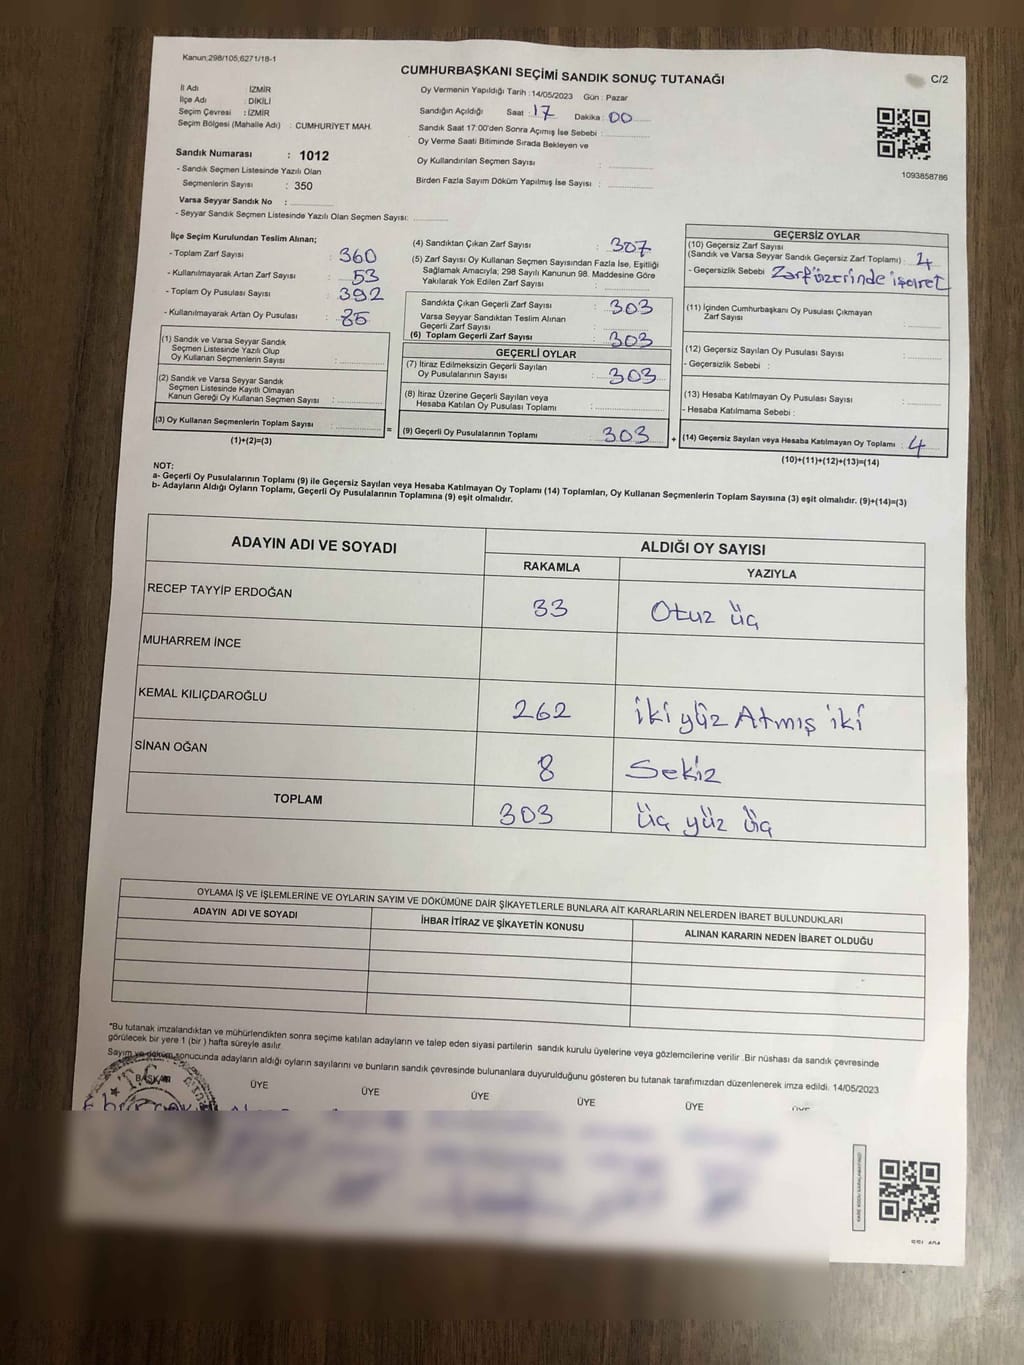 Kanun;298/105;6271/18-1
CUMHURBAŞKANI SEÇİMİ SANDIK SONUÇ TUTANAĞI
C/2
İl Adı : İZMİR
İlçe Adı : DİKİLİ
Seçim Çevresi : İZMİR
Seçim Bölgesi (Mahalle Adı) : CUMHURİYET MAH.
Sandık Numarası : 1012
- Sandık Seçmen Listesinde Yazılı Olan
Seçmenlerin Sayısı : 350
Varsa Seyyar Sandık No :
- Seyyar Sandık Seçmen Listesinde Yazılı Olan Seçmen Sayısı:
Oy Vermenin Yapıldığı Tarih : 14/05/2023 Gün : Pazar
Sandığın Açıldığı Saat : 17 Dakika : 00
Sandık Saat 17:00'den Sonra Açımış İse Sebebi :
Oy Verme Saati Bitiminde Sırada Bekleyen ve
Oy Kullandırılan Seçmen Sayısı :
Birden Fazla Sayım Döküm Yapılmış İse Sayısı :
1093858786
İlçe Seçim Kurulundan Teslim Alınan;
- Toplam Zarf Sayısı : 360
- Kullanılmayarak Artan Zarf Sayısı : 53
- Toplam Oy Pusulası Sayısı : 392
- Kullanılmayarak Artan Oy Pusulası : 85
(1) Sandık ve Varsa Seyyar Sandık
Seçmen Listesinde Yazılı Olup
Oy Kullanan Seçmenlerin Sayısı :
(2) Sandık ve Varsa Seyyar Sandık
Seçmen Listesinde Kayıtlı Olmayan
Kanun Gereği Oy Kullanan Seçmen Sayısı :
(3) Oy Kullanan Seçmenlerin Toplam Sayısı :
(1)+(2)=(3)
=
(4) Sandıktan Çıkan Zarf Sayısı : 307
(5) Zarf Sayısı Oy Kullanan Seçmen Sayısından Fazla İse, Eşitliği
Sağlamak Amacıyla; 298 Sayılı Kanunun 98. Maddesine Göre
Yakılarak Yok Edilen Zarf Sayısı :
Sandıkta Çıkan Geçerli Zarf Sayısı : 303
Varsa Seyyar Sandıktan Teslim Alınan
Geçerli Zarf Sayısı :
(6) Toplam Geçerli Zarf Sayısı : 303
GEÇERLİ OYLAR
(7) İtiraz Edilmeksizin Geçerli Sayılan
Oy Pusulalarının Sayısı : 303
(8) İtiraz Üzerine Geçerli Sayılan veya
Hesaba Katılan Oy Pusulası Toplamı :
(9) Geçerli Oy Pusulalarının Toplamı : 303
+
GEÇERSİZ OYLAR
(10) Geçersiz Zarf Sayısı
(Sandık ve Varsa Seyyar Sandık Geçersiz Zarf Toplamı) : 4
- Geçersizlik Sebebi : Zarf üzerinde işaret
(11) İçinden Cumhurbaşkanı Oy Pusulası Çıkmayan
Zarf Sayısı :
(12) Geçersiz Sayılan Oy Pusulası Sayısı :
- Geçersizlik Sebebi :
(13) Hesaba Katılmayan Oy Pusulası Sayısı :
- Hesaba Katılmama Sebebi :
(14) Geçersiz Sayılan veya Hesaba Katılmayan Oy Toplamı : 4
(10)+(11)+(12)+(13)=(14)
NOT:
a- Geçerli Oy Pusulalarının Toplamı (9) ile Geçersiz Sayılan veya Hesaba Katılmayan Oy Toplamı (14) Toplamları, Oy Kullanan Seçmenlerin Toplam Sayısına (3) eşit olmalıdır. (9)+(14)=(3)
b- Adayların Aldığı Oyların Toplamı, Geçerli Oy Pusulalarının Toplamına (9) eşit olmalıdır.
ADAYIN ADI VE SOYADI ALDIĞI OY SAYISI
RAKAMLA YAZIYLA
RECEP TAYYİP ERDOĞAN 33 Otuz üç
MUHARREM İNCE
KEMAL KILIÇDAROĞLU 262 iki yüz Atmış iki
SİNAN OĞAN 8 Sekiz
TOPLAM 303 üç yüz üç
OYLAMA İŞ VE İŞLEMLERİNE VE OYLARIN SAYIM VE DÖKÜMÜNE DAİR ŞİKAYETLERLE BUNLARA AİT KARARLARIN NELERDEN İBARET BULUNDUKLARI
ADAYIN ADI VE SOYADI İHBAR İTİRAZ VE ŞİKAYETİN KONUSU ALINAN KARARIN NEDEN İBARET OLDUĞU
*Bu tutanak imzalandıktan ve mühürlendikten sonra seçime katılan adayların ve talep eden siyasi partilerin sandık kurulu üyelerine veya gözlemcilerine verilir .Bir nüshası da sandık çevresinde
görülecek bir yere 1 (bir ) hafta süreyle asılır.
Sayım ve döküm sonucunda adayların aldığı oyların sayılarını ve bunların sandık çevresinde bulunanlara duyurulduğunu gösteren bu tutanak tarafımızdan düzenlenerek imza edildi. 14/05/2023
BAŞKAN ÜYE ÜYE ÜYE ÜYE ÜYE ÜYE
T.C.